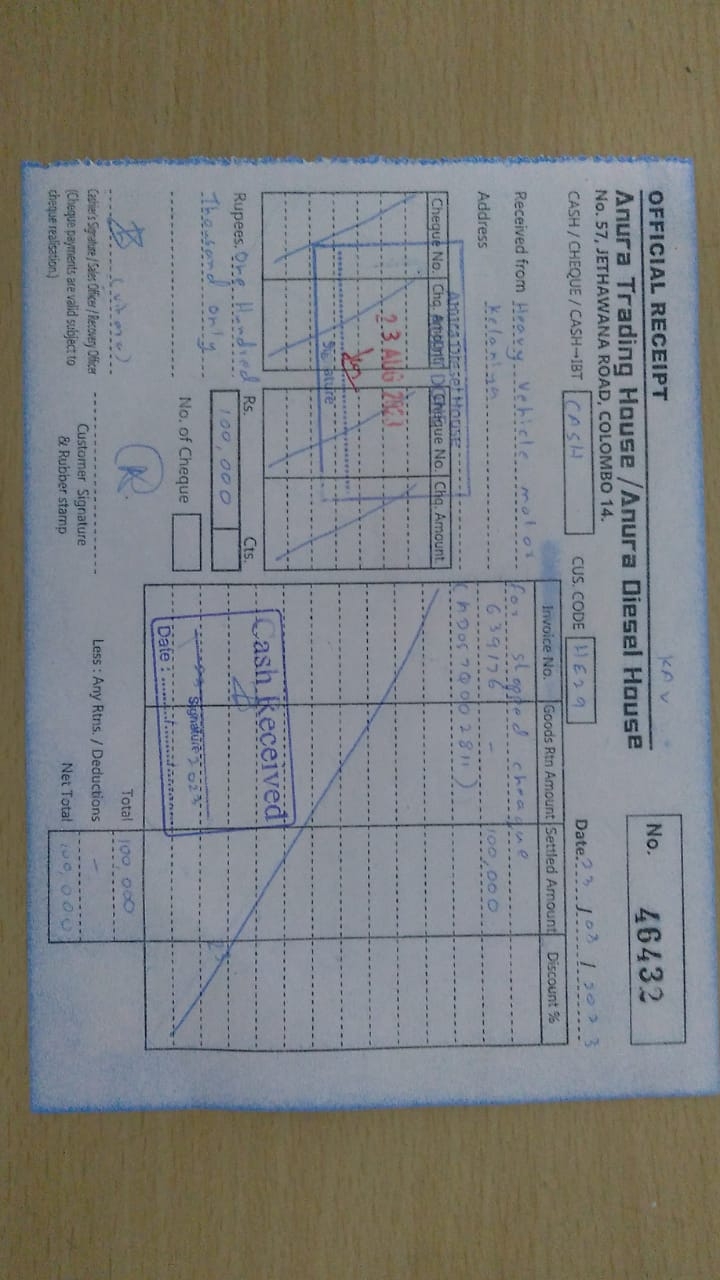 KAV
OFFICIAL RECEIPT
No. 46432
Anura Trading House / Anura Diesel House
No. 57, JETHAWANA ROAD, COLOMBO 14.
CASH / CHEQUE / CASH→IBT CASH
CUS. CODE HE29
Date 23/08/2023
Received from Heavy vehicle motor
Address Kelaniya
Cheque No. Chq. Amount Cheque No. Chq. Amount
Anura Diesel House
23 AUG
Rupees. One Hundred
Thousand only
Rs. Cts.
100,000
No. of Cheque
Cashier's Signature / Sales Officer / Recovery Officer
(Cheque payments are valid subject to
cheque realisation.)
Customer Signature
& Rubber stamp
Invoice No. Goods Rtn Amount Settled Amount Discount %
for stopped cheaque
639176 - 100,000
Cash Received
Signature
Date :
Total 100,000
Less : Any Rtns. / Deductions -
Net Total 100,000